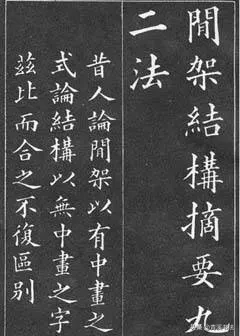 間架結構摘要九
二法
昔人論間架以有中畫之
式論結構以無中畫之字
茲比而合之不復區别